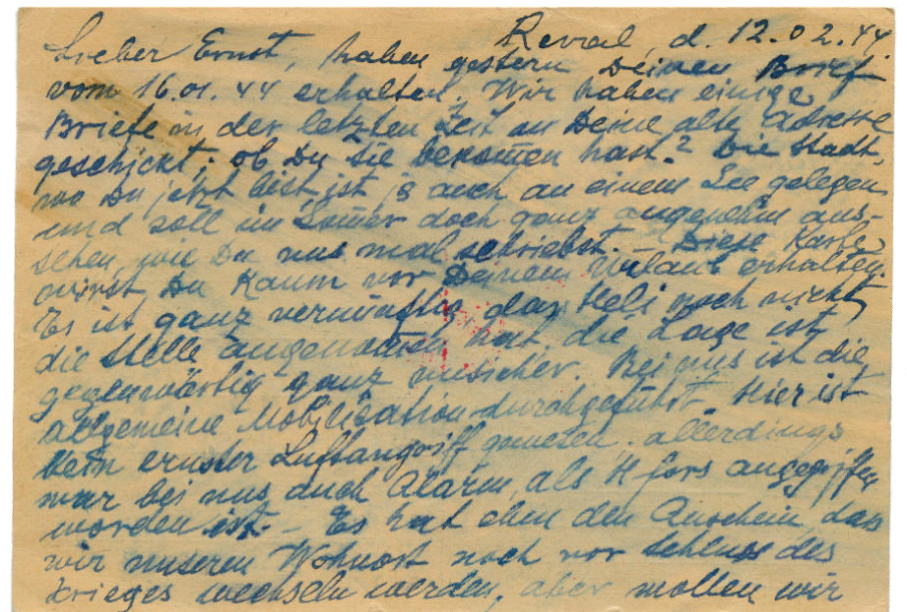 Reval, d. 12.02.44.
Lieber Ernst, haben gestern Deinen Brief
vom 16.01.44 erhalten. Wir haben einige
Briefe in der letzten Zeit an Deine alte Adresse
geschickt; ob Du sie bekom̄en hast? Die Stadt,
wo Du jetzt bist, ist ja auch an einem See gelegen
und soll im Som̄er doch ganz angenehm aus-
sehen, wie Du uns mal schriebst. – Diese Karte
wirst Du kaum vor Deinem Urlaub erhalten.
Es ist ganz vernünftig, das Heli noch nicht
die Stelle angenom̄en hat, die Lage ist
gegenwärtig ganz unsicher. Bei uns ist die
allgemeine Mobilisation durchgeführt. Hier ist
kein ernster Luftangriff gewesen, allerdings
war bei uns auch Alarm, als H.fors angegriffen
worden ist. – Es hat eben den Anschein, das
wir unseren Wohnort noch vor Schluss des
Krieges wechseln werden, aber wollen wir